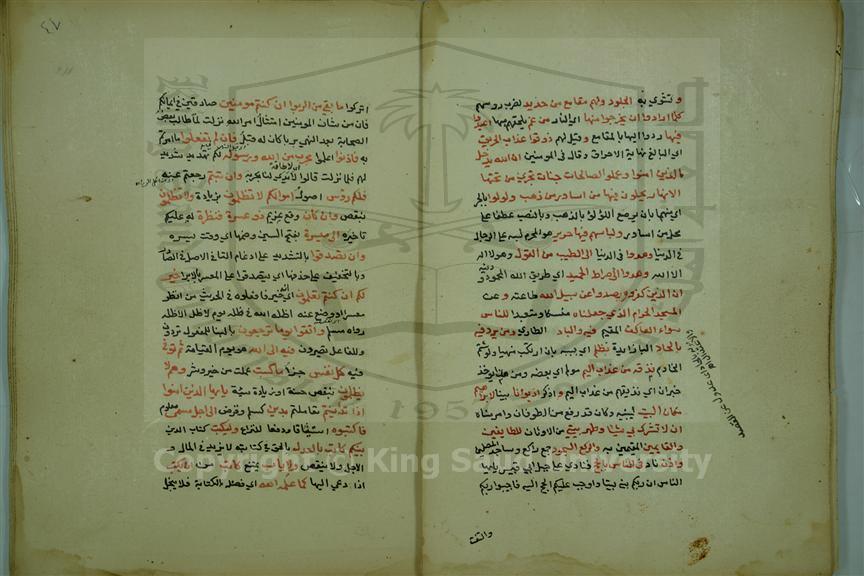 وتشوى به الجلود ولهم مقامع من حديد لضرب رؤسهم
كلما ارادوا ان يخرجوا منها اي النار من غم يلحقهم بها اعيدوا
فيها ردوا اليها بالمقامع وقيل لهم ذوقوا عذاب الحريق
اي البالغ نهاية الاحراق وقال في المومنين ان الله يدخل
الذين امنوا وعملوا الصالحات جنات تجري من تحتها
الانهار يحلون فيها من اساور من ذهب ولولوا بالجر
اي منهما بان يرصع اللؤلؤ بالذهب وبالنصب عطفا على
محل من اساور ولباسهم فيها حرير هو المحرم لبسه على الرجال
في الدنيا وهدوا في الدنيا الى الطيب من القول وهو لا اله
الا الله وهدوا الى صراط الحميد اي طريق الله المحمودة ودينه
ان الذين كفروا ويصدون عن سبيل الله طاعته وعن
المسجد الحرام الذي جعلناه منسكا ومتعبدا للناس
سواء العاكف المقيم فيه والباد الطاري ومن يرد فيه
بالحاد البا زايدة بظلم اي بسببه بان ارتكب منهيا ولو شتم
الخادم نذقه من عذاب اليم مولم اي بعضه ومن هذا يوخذ
خبر ان اي نذيقهم من عذاب اليم واذكر اذ بوانا بينا لابراهيم
مكان البيت ليبنيه وكان قد رفع من الطوفان وامرناه
ان لا تشرك بي شيئا وطهر بيتي من الاوثان للطايفين
والقايمين المقيمين به والركع السجود جمع راكع وساجد المصلين
واذن ناد في الناس بالحج فنادى على جبل ابي قبيس يايها
الناس ان ربكم بنى بيتا واوجب عليكم الحج اليه فاجيبوا ربكم
والتفت
٤٧
اتركوا ما بقي من الربوا ان كنتم مومنين صادقين في ايمانكم
فان من شان المومنين امتثال امر الله نزلت لما طالب بعض
الصحابة بعد النهي بربا كان له قبل فان لم تفعلوا ما امرتم
به فاذنوا اعلموا بحرب من الله ورسوله لكم تهديد شديد
لهم فلما نزلت قالوا لا يدي لنا بحربه وان تبتم رجعتم عنه
فلكم رؤس اصول اموالكم لا تظلمون بزيادة ولا تظلمون
بنقص وان كان وقع غريم ذو عسرة فنظرة له عليكم
تاخيره الى ميسرة بفتح السين وضمها اي وقت يسره
وان تصدقوا بالتشديد على ادغام التا في الاصل في الصاد
وبالتخفيف على حذفها اي يتصدقوا على المعسر بالابرا خير
لكم ان كنتم تعلمون انه خير فافعلوه في الحديث من انظر
معسرا او وضع عنه اظله الله في ظله يوم لا ظل الا ظله
رواه مسلم واتقوا يوما ترجعون بالبنا للمفعول تردون
وللفاعل تصيرون فيه الى الله هو يوم القيامة ثم توفى
فيه كل نفس جزا ما كسبت عملت من خير وشر وهم لا
يظلمون بنقص حسنة او زيادة سيئة يايها الذين امنوا
اذا تداينتم تعاملتم بدين كسلم وقرض الى اجل مسمى معلوم
فاكتبوه استيثاقا ودفعا للنزاع وليكتب كتاب الدين
بينكم كاتب بالعدل بالحق في كتابته لا يزيد في المال و
الاجل ولا ينقص ولا ياب يمتنع كاتب من ان يكتب
اذا دعي اليها كما علمه الله اي فضله بالكتابة فلا يبخل
Copyright © King Saud University
195